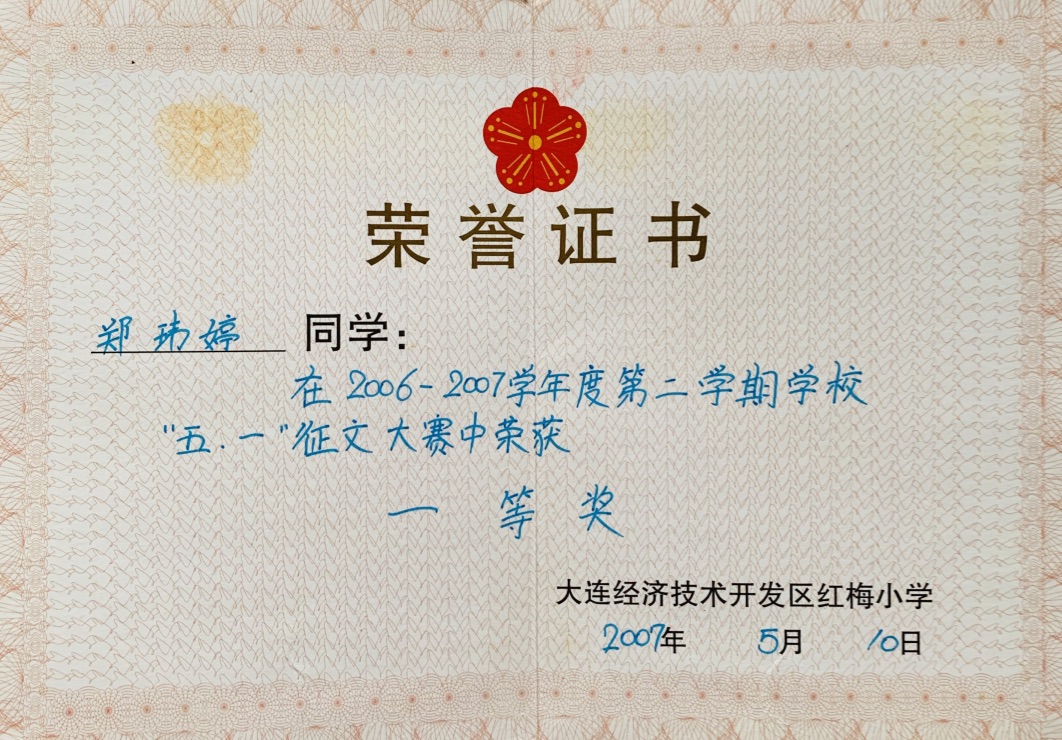 荣誉证书
郑玮婷 同学:
在2006-2007学年度第二学期学校
"五.一"征文大赛中荣获
一等奖
大连经济技术开发区红梅小学
2007年 5月 10日